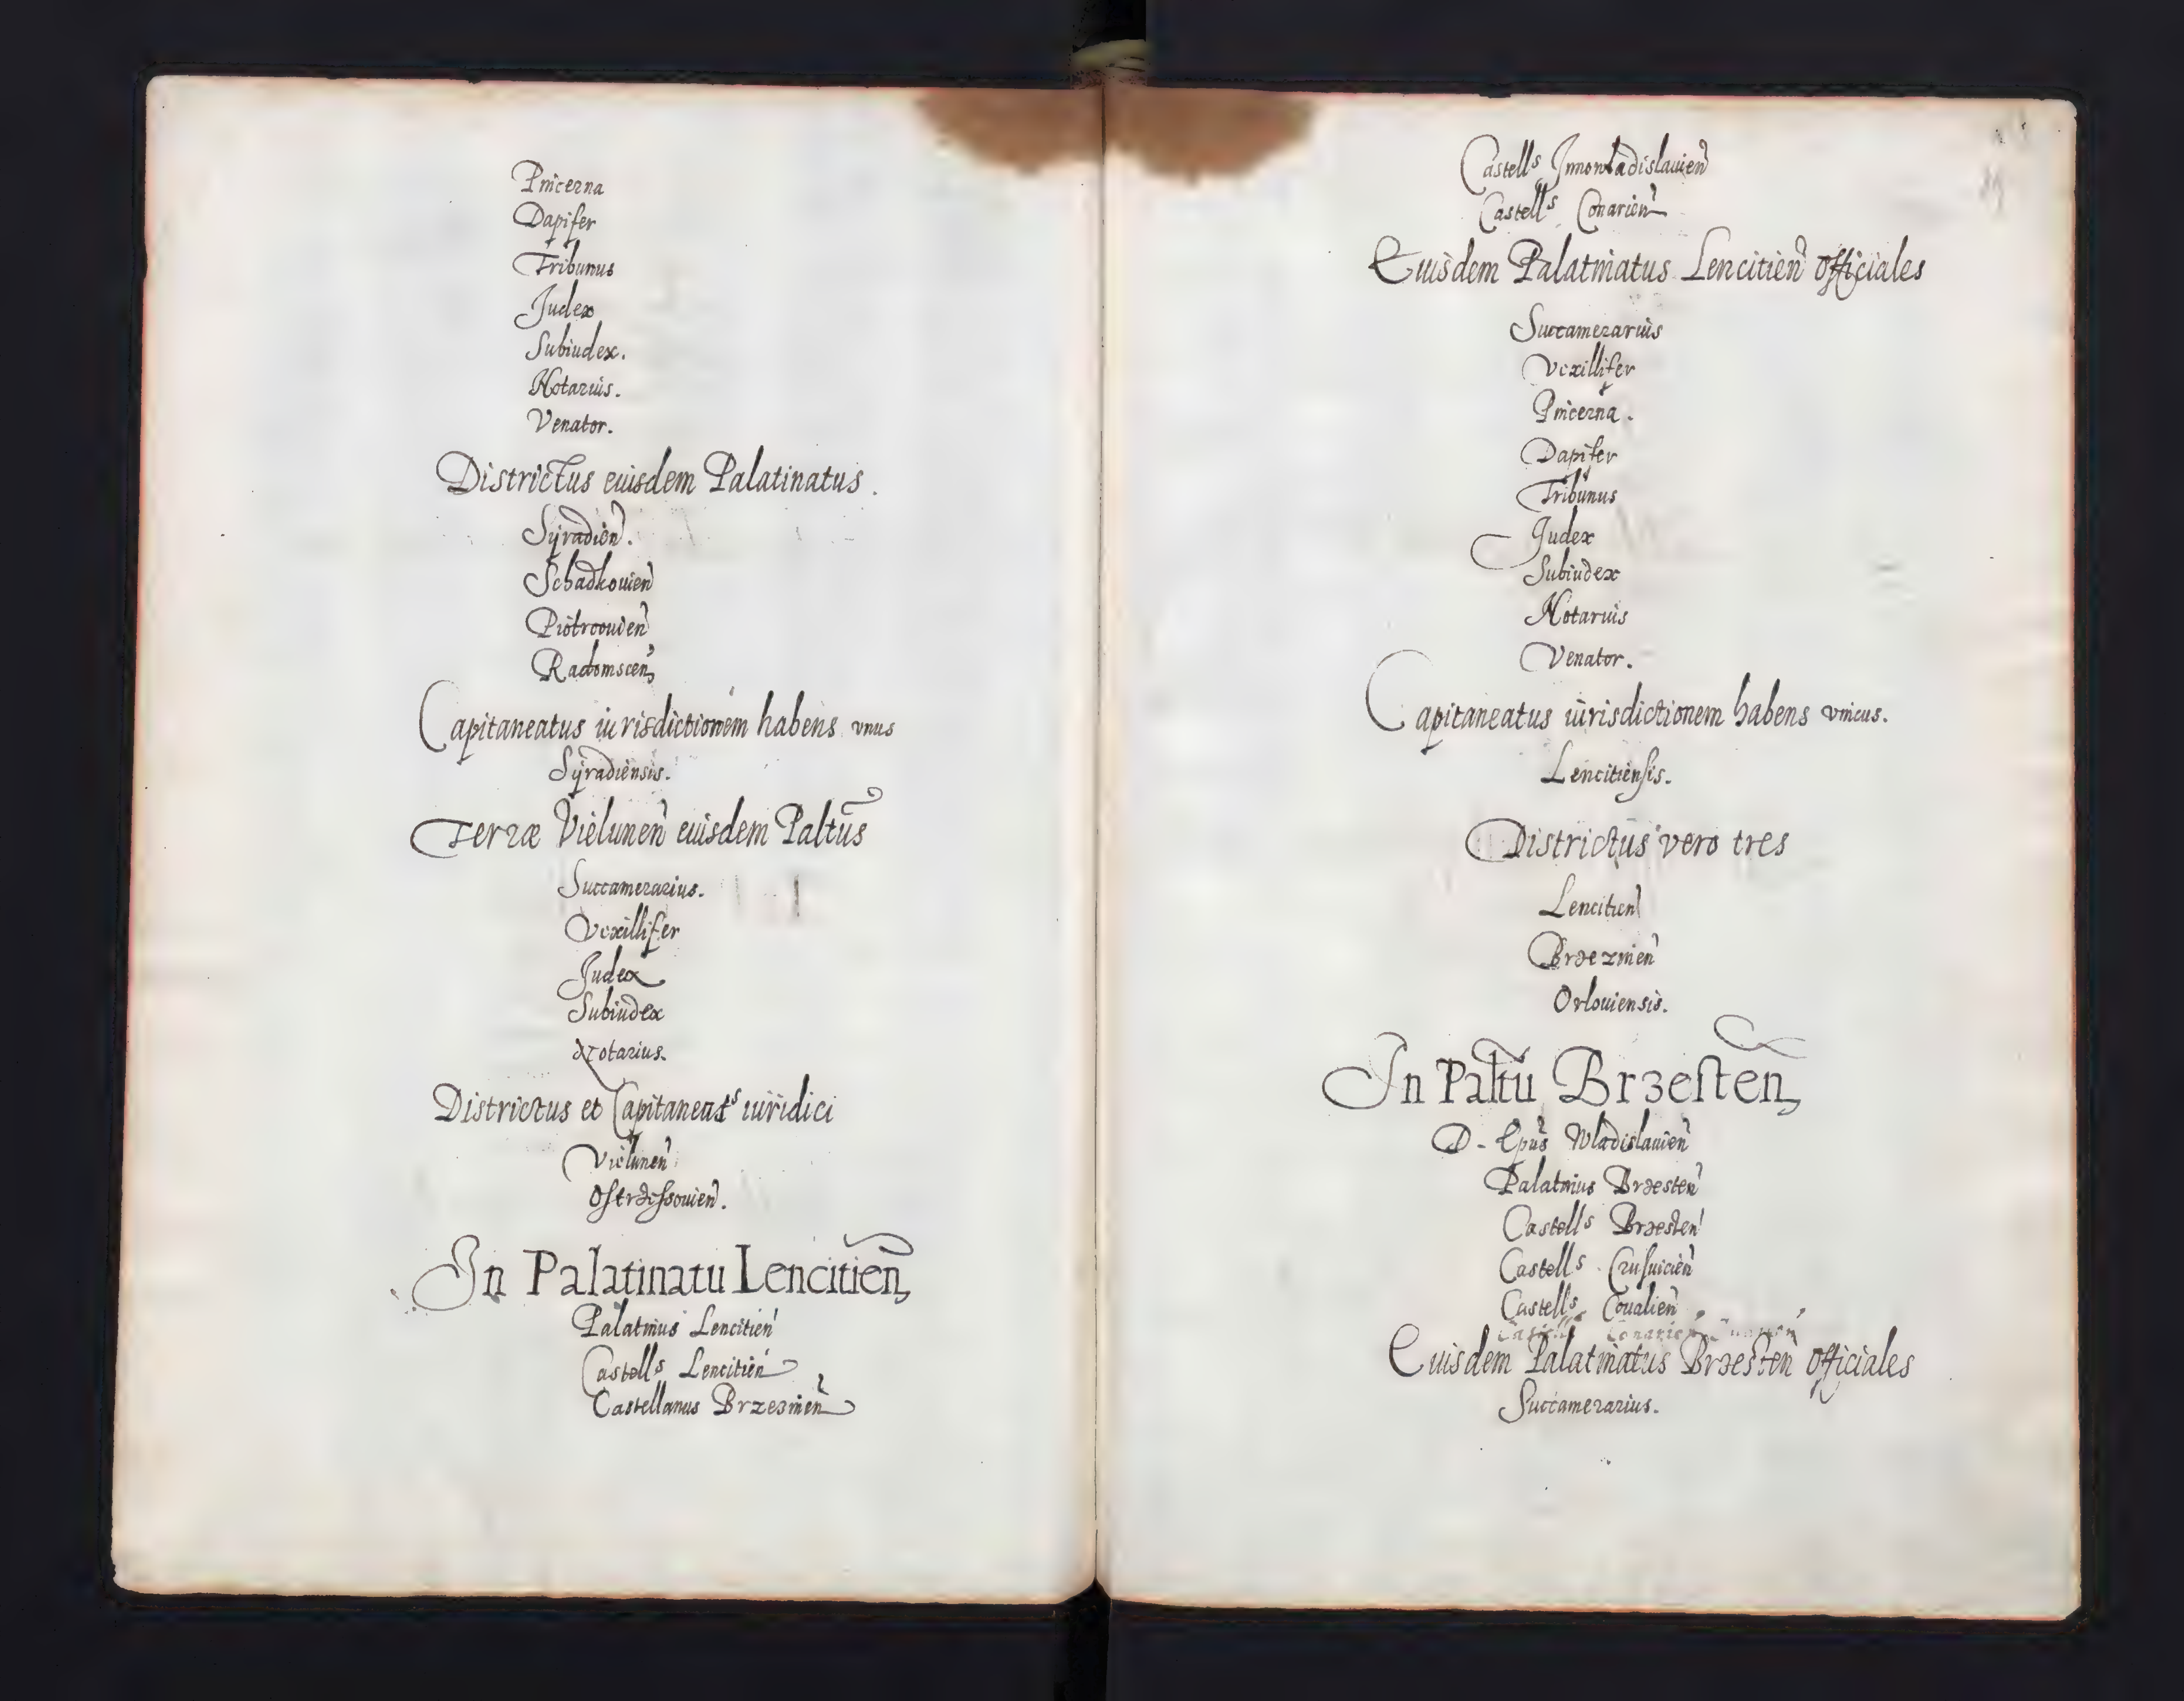 Pincerna
Dapifer
Tribunus
Judex
Subiudex.
Notarius.
Venator.
Districtus eiusdem Palatinatus.
Syradien̄.
Schadkouien̄
Piotrcouien̄
Radomscen̄
Capitaneatus iurisdictionem habens vnus
Syradiensis.
Terræ Vielunen̄ eiusdem Paltūs
Succamerarius.
Vexillifer
Judex
Subiudex
Notarius.
Districtus et Capitaneatˢ iuridici
Vielunen̄
Ostrzessouien̄.
In Palatinatu Lencitien̄
Palatinus Lencitien̄
Castellˢ Lencitien̄
Castellanus Brzezinen̄
Castellˢ Jnnowladislauien̄
Castellˢ Conarien̄
Eiusdem Palatinatus Lencitien̄ officiales
Succamerarius
Vexillifer
Pincerna.
Dapifer
Tribunus
Judex
Subiudex
Notarius
Venator.
Capitaneatus iurisdictionem habens vnicus.
Lencitiensis.
Districtus vero tres
Lencitien̄
Brzezinien̄
Orlouiensis.
In Paltū Brzesten̄
D. Epūs Wladislauien̄
Palatinus Brzesten̄
Castellˢ Brzesten̄
Castellˢ Crusuicien̄
Castellˢ Coualien̄
Eiusdem Palatinatus Brzesten̄ officiales
Succamerarius.